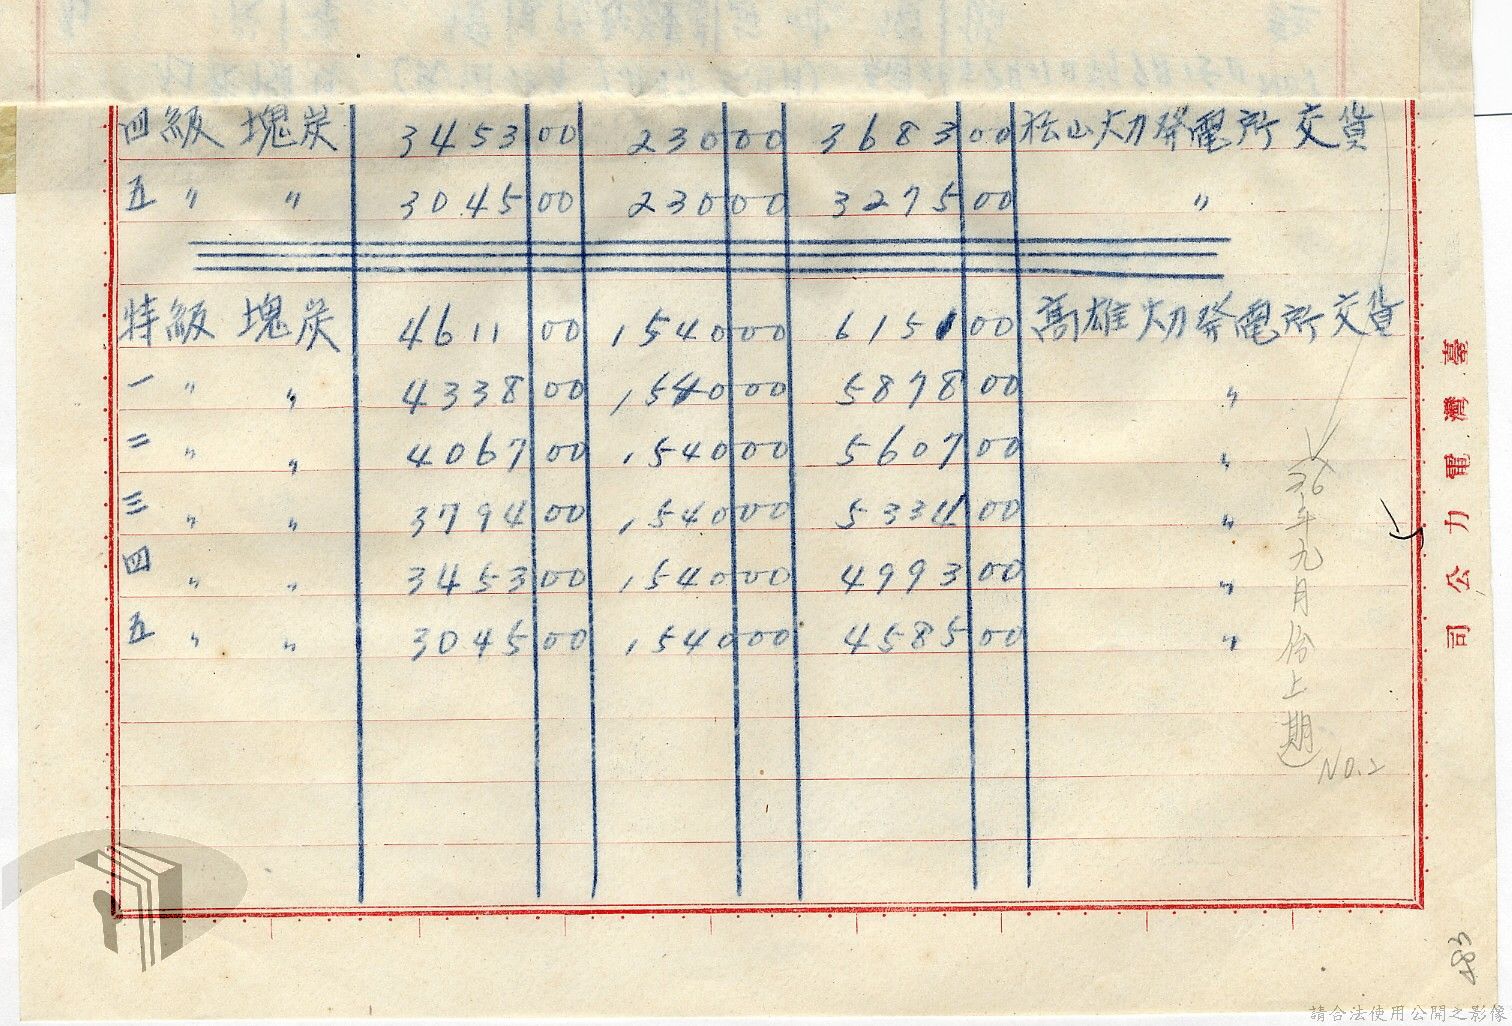 四級 塊炭 3453 00 230 00 3683 00 松山火力發電所 交貨
五 〃 〃 3045 00 230 00 3275 00 〃
特級 塊炭 4611 00 1,540 00 6151 00 高雄火力發電所交貨
一 〃 〃 4338 00 1,540 00 5878 00 〃
二 〃 〃 4067 00 1,540 00 5607 00 〃
三 〃 〃 3794 00 1,540 00 5334 00 〃
四 〃 〃 3453 00 1,540 00 4993 00 〃
五 〃 〃 3045 00 1,540 00 4585 00 〃
36年九月份上期
NO.2
臺灣電力公司
請合法使用公開之影像